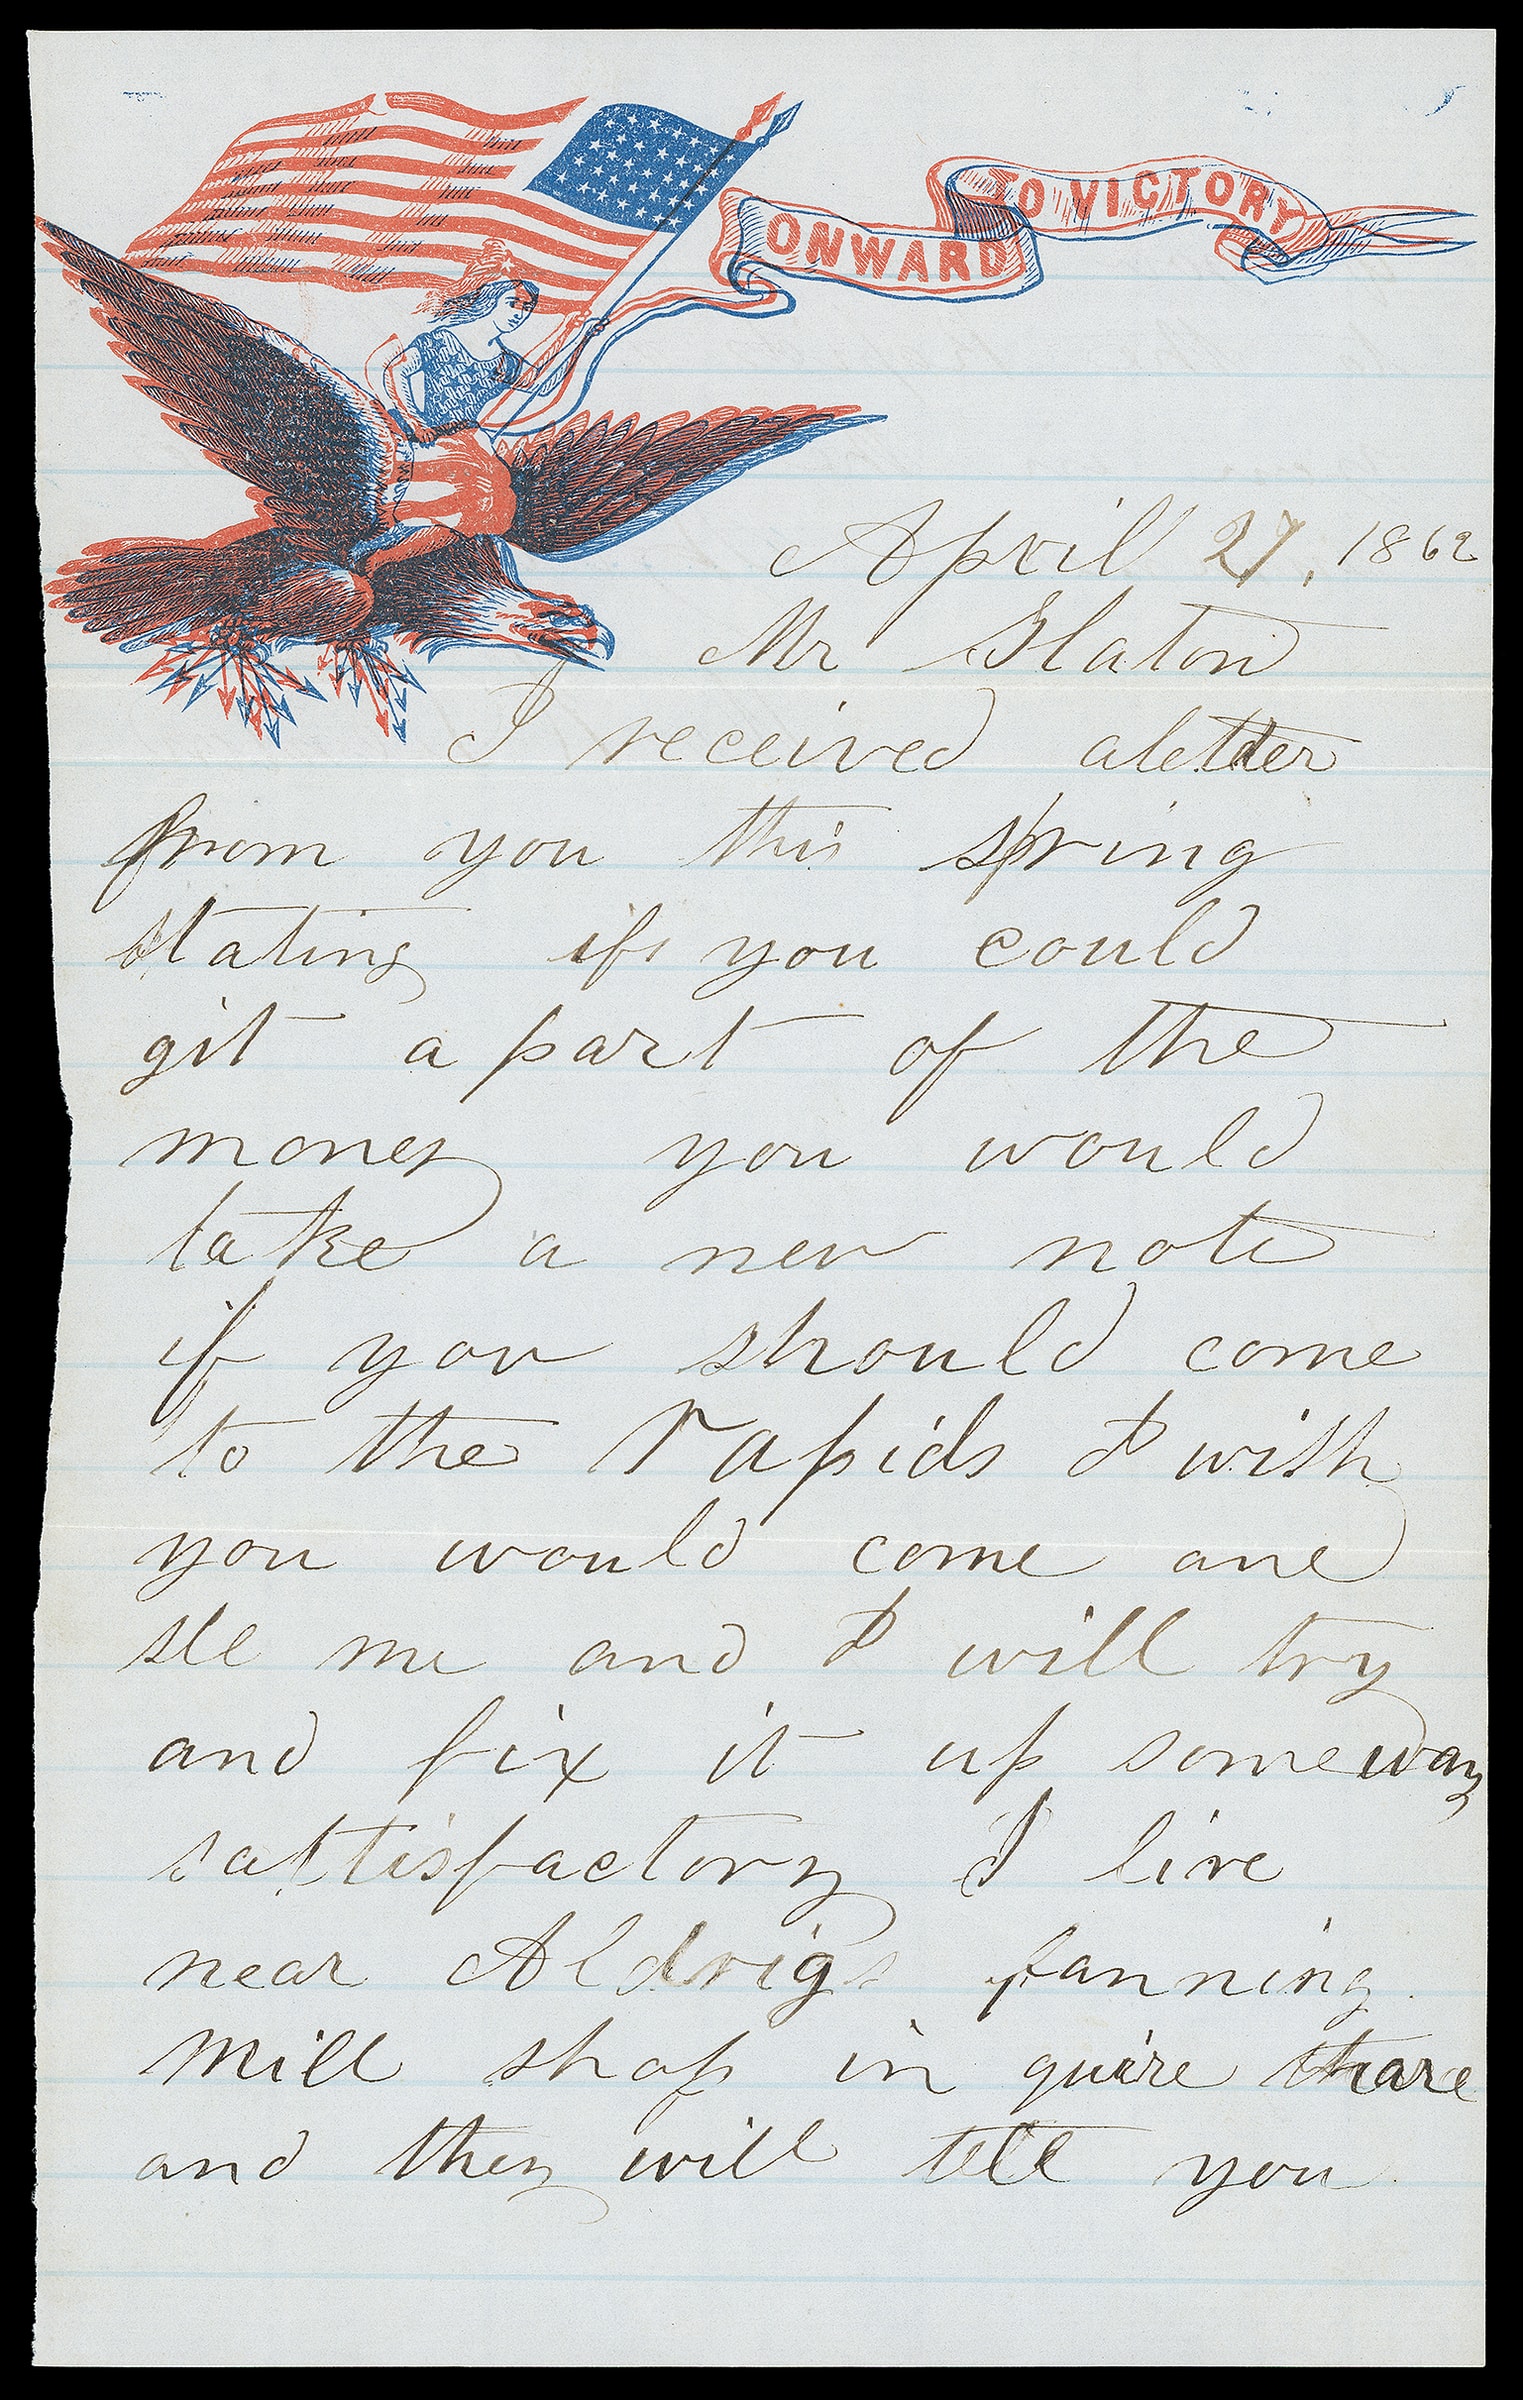 ONWARD TO VICTORY
April 27, 1862
Mr Slaton
I received aletter
from you this spring
stating if you could
git a part of the
money you would
take a new note
if you should come
to the rapids I wish
you would come and
see me and I will try
and fix it up someway
sattisfactory I live
near Aldrigs fanning
mill shop in quire thare
and they will tell you